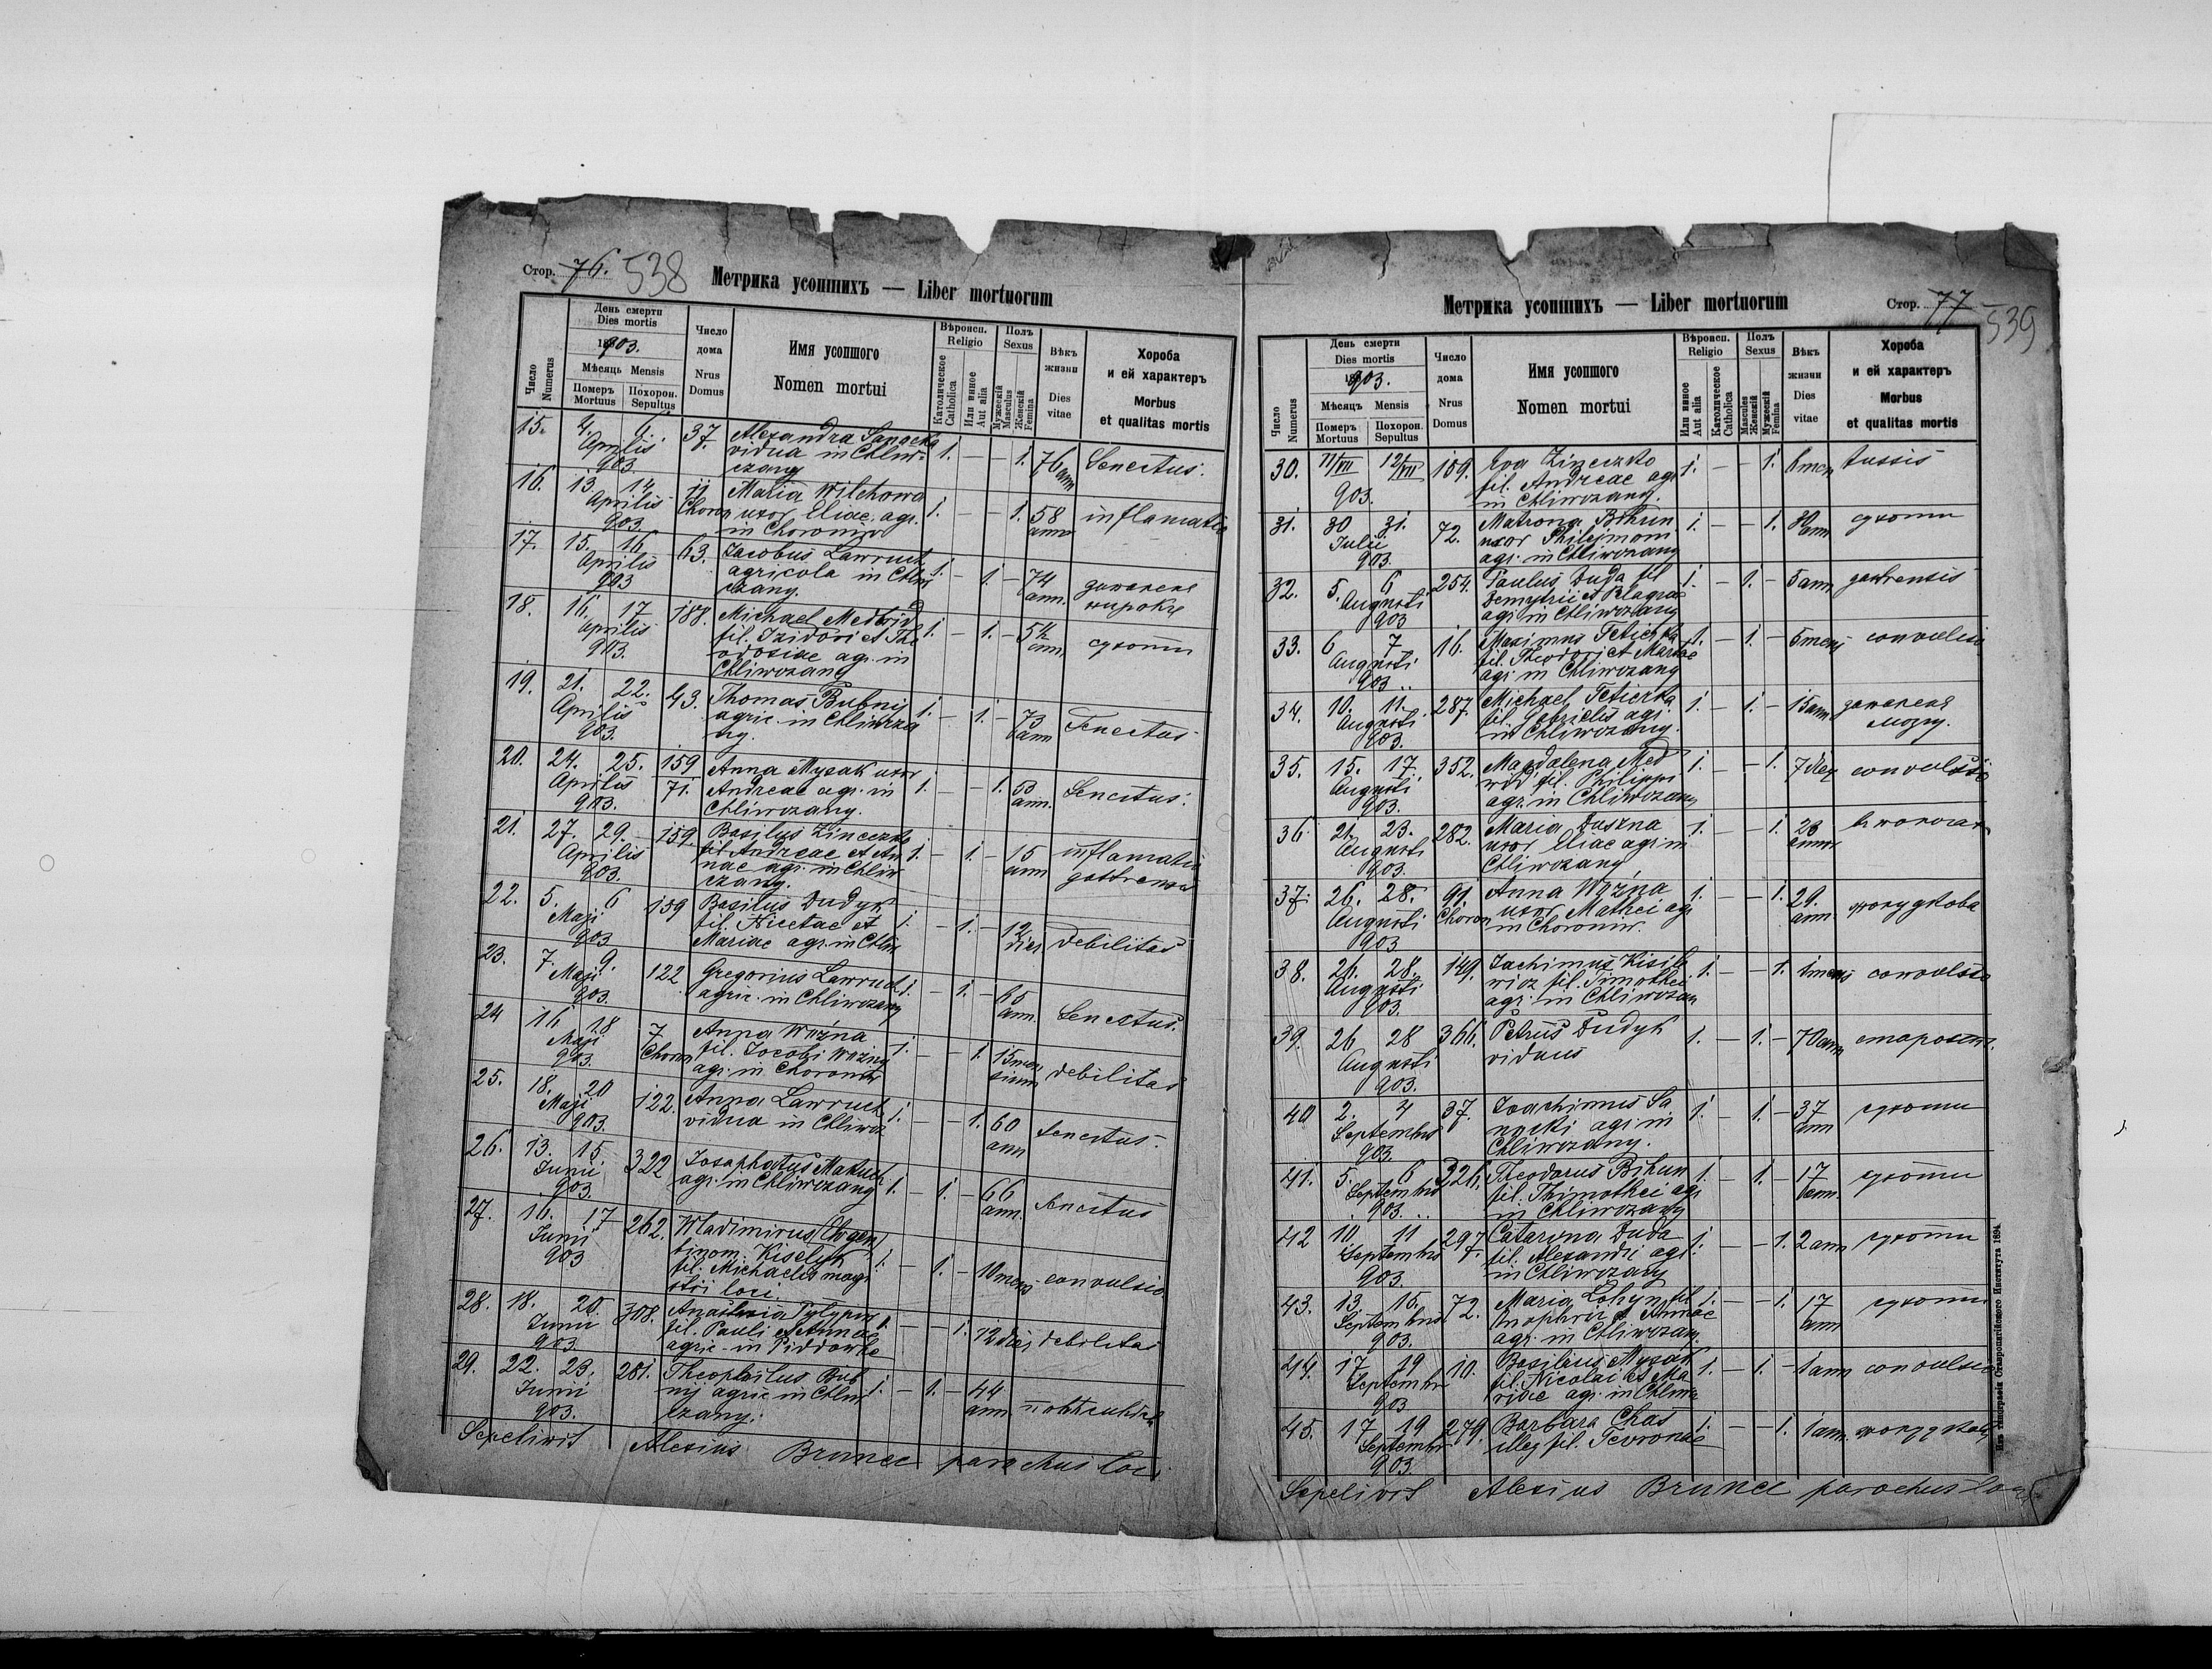 Стор. 76. 538
Метрика усопшихъ — Liber mortuorum
Число Numerus
День смерти
Dies mortis
1903.
Мѣсяць Mensis
Померъ Mortuus
Похорон. Sepultus
Число дома
Nrus Domus
Имя усопшого
Nomen mortui
Вѣроисп. Religio
Католическое Catholica
Или инное Aut alia
Полъ Sexus
Мужескій Masculus
Женскій Femina
Вѣкъ жизни
Dies vitae
Хороба и ей характеръ
Morbus et qualitas mortis
15. 4. 6. Aprilis 903 37. Alexandra Sanocka
vidua in Chliw-
czany 1. — — 1. 76 ann Senectus.
16. 13. 14. Aprilis 903 11 Choron Maria Wilchowa
uxor Eliae agr.
in Choroniw 1. — — 1. 58 anno inflamatio
17. 15. 16. Aprilis 903 63. Jacobus Lawruch
agricola in Chliw
czany. 1. — 1. — 74 ann.
18. 16. 17 Aprilis 903. 188. Michael Medwid
fil. Izidori et The
odosiae agr. in
Chliwczany 1. — 1. — 54 ann. сухоти
19. 21. 22. Aprilis 903. 43. Thomas Bubnij
agric. in Chliwcza
ny. 1. — 1. — 73 ann Senectus
20. 24. 25. Aprilis 903. 159 71. Anna Mysak uxor
Andreae agr. in
Chliwczany. 1. — — 1. 53 ann. Senectus.
21. 27. 29. Aprilis 903. 159. Basilus Zineczko
fil. Andreae et An
nae agr. in Chliw
czany. 1. — 1. — 15 ann inflamatio
22. 5. 6 Maji 903 159 Basilius Dudyk
fil. Nicetae et
Mariae agr. in Chliw 1. — 1. — 12 dies debilitas
23. 7. 9. Maji 903. 122 Gregorius Lawruch
agric. in Chliwczany 1. — 1. — 65 ann. Senectus.
24 16. 18 Maji 903. 7 Choron Anna Woźna
fil. Jacobi Woźny
agr. in Choroniw 1. — — 1. 15 men
sium debilitas
25. 18. 20 Maji 903. 122. Anna Lawruch
vidua in Chliwcz 1. — — 1. 60 ann Senectus.
26. 13. 15. Junii 903. 322 Josaphatus Maruch
agr. in Chliwczany 1. — 1. — 66 ann. Senectus
27. 16. 17 Junii 903 262. Wladimirus
binom. Kiselyk
fil. Michaelis magi
stri loci. 1. — 1. — 10 mens convulsio
28. 18. 20. Junii 903. 308. Anastasia Pylypiw
fil. Pauli et Annae
agric. in Piddowhe 1. — — 1. 12 dies debilitas
29. 22. 23. Junii 903. 281. Theophilus Bub
nij agric in Chliw
czany. 1. — 1. — 44 ann
Sepelivit Alexius Brunec parochus loci
Метрика усопшихъ — Liber mortuorum
Стор. 77 539
Число Numerus
День смерти
Dies mortis
1903.
Мѣсяцъ Mensis
Померъ Mortuus
Похорон. Sepultus
Число дома
Nrus Domus
Имя усопшого
Nomen mortui
Вѣроисп. Religio
Или инное Aut alia
Католическое Catholica
Полъ Sexus
Masculus Женскій
Мужескій Femina
Вѣкъ жизни
Dies vitae
Хороба и ей характеръ
Morbus et qualitas mortis
30. 11/VII 12/VII 903. 159. Eva Zineczko
fil. Andreae agr
in Chliwczany. 1. — — 1. 8 men tussis
31. 30 31. Julii 903. 72. Matrona Bihun
uxor Philejmoni
agr. in Chliwczany 1. — — 1. 30 ann сухоти
32. 5. 6 Augusti 903 254. Paulus Duda fil
Demytrii et Pelagiae
agr in Chliwczany 1. — 1. — 5 ann
33. 6 7 Augusti 903 16. Maximus Feticzka
fil. Theodori et Mariae
agr. in Chliwczany 1. — 1. — 5 mens convulsio
34. 10. 11. Augusti 903. 287. Michael Feticzka
fil. Gabrielis agr.
in Chliwczany. 1. — 1. — 15 ann запаленя
мозгу.
35. 15. 17. Augusti 903. 352. Magdalena Med
wid fil. Philippi
agr. in Chliwczany 1. — — 1. 7 dies convulsio
36. 21. 23. Augusti 903. 282. Maria Duszna
uxor Eliae agr in
Chliwczany 1. — — 1. 23 annos
37. 26. 28. Augusti 903 91. Choron Anna Woźna
uxor Mathei agr
in Choroniw. 1. — — 1. 29. ann.
38. 26. 28. Augusti 903. 149. Jachimus Kisile
wicz fil. Timothei
agr. in Chliwczany 1. — — 1. 1 mens convulsio
39. 26 28 Augusti 903. 366. Petrus Dudyk
viduus 1. — 1. — 70 ann старость.
40 2. 4 Septembris 903. 37. Joachimus Sa
nocki agr. in
Chliwczany. 1. — 1. — 37 ann сухоти
41. 5. 6 Septembris 903. 326. Theodorus Bihun
fil. Thimothei agr
in Chliwczany 1. — 1. — 17 ann. сухоти
42 10. 11 Septembris 903. 297. Cataryna Duda
fil. Alexandri agr.
in Chliwczany 1. — — 1. 2 ann сухоти
43. 13. 15. Septembris 903. 72. Maria Lohyn fil
Onophrii et Annae
agr. in Chliwczany. 1. — — 1. 17 ann сухоти
44. 17 19 Septembr 903 10. Basilius Mysak
fil. Nicolai et Ma
riae agr. in Chliwcz 1. — 1. — 1 ann convulsio
45. 17 19 Septembr 903. 279. Barbara Chas
illeg fil. Fevroniae 1. — — 1. 1 ann.
Sepelivit Alexius Brunec parochus loci
Изъ типографіи Ставропигійского Института 1894.